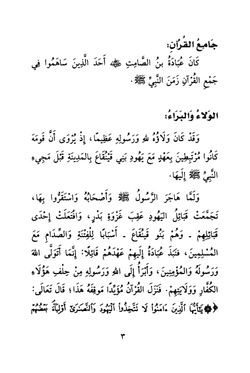 جَامِعُ القُرْآنِ:
كَانَ عُبَادَةُ بنُ الصَّامِتِ ﵁ أَحَدَ الَّذِينَ سَاهَمُوا فِي
جَمْعِ القُرْآنِ زَمَنَ النَّبِيِّ ﷺ.
الوَلَاءُ وَالبَرَاءُ:
وَقَدْ كَانَ وَلَاؤُهُ للهِ وَرَسُولِهِ عَظِيمًا، إِذْ يُرْوَى أَنَّ قَوْمَهُ
كَانُوا مُرْتَبِطِينَ بِعَهْدٍ مَعَ يَهُودِ بَنِي قَيْنُقَاعَ بِالمَدِينَةِ قَبْلَ مَجِيءِ
النَّبِيِّ ﷺ إِلَيهَا.
وَلَمَّا هَاجَرَ الرَّسُولُ ﷺ وَأَصْحَابُهُ وَاسْتَقَرُّوا بِهَا،
تَجَمَّعَتْ قَبَائِلُ اليَهُودِ عَقِبَ غَزْوَةِ بَدْرٍ، وَافْتَعَلَتْ إِحْدَى
قَبَائِلِهِمْ - وَهُمْ بَنُو قَيْنُقَاعَ - أَسْبَابًا لِلْفِتْنَةِ وَالصِّدَامِ مَعَ
المُسْلِمِينَ، فَنَبَذَ عُبَادَةُ إِلَيهِمْ عَهْدَهُمْ قَائِلًا: إِنَّمَا أَتَوَلَّى اللهَ
وَرَسُولَهُ وَالمُؤْمِنِينَ، وَأَبْرَأُ إِلَى اللهِ وَرَسُولِهِ مِنْ حِلْفِ هَؤُلَاءِ
الكُفَّارِ وَوَلَايَتِهِمْ. فَنَزَلَ القُرْآنُ مُؤَيِّدًا مَوقِفَهُ هَذَا؛ قَالَ تَعَالَى:
﴿۞ يَٰٓأَيُّهَا ٱلَّذِينَ ءَامَنُوا۟ لَا تَتَّخِذُوا۟ ٱلْيَهُودَ وَٱلنَّصَٰرَىٰٓ أَوْلِيَآءَ ۘ بَعْضُهُمْ
٣